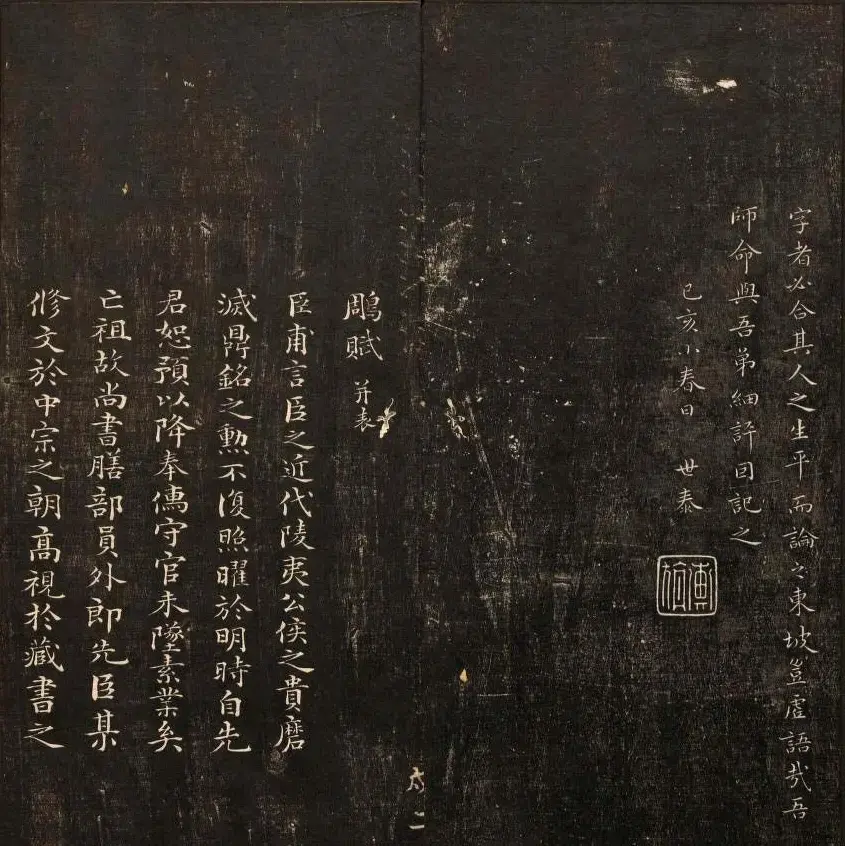 字者必合其人之生平而論之東坡豈虛語哉吾
師命與吾弟細評因記之
己亥小春日 世泰
鵰賦 并表
臣甫言臣之近代陵夷公侯之貴磨
滅鼎銘之勲不復照曜於明時自先
君恕預以降奉儒守官未墜素業矣
亡祖故尚書膳部員外郎先臣某
修文於中宗之朝高視於藏書之